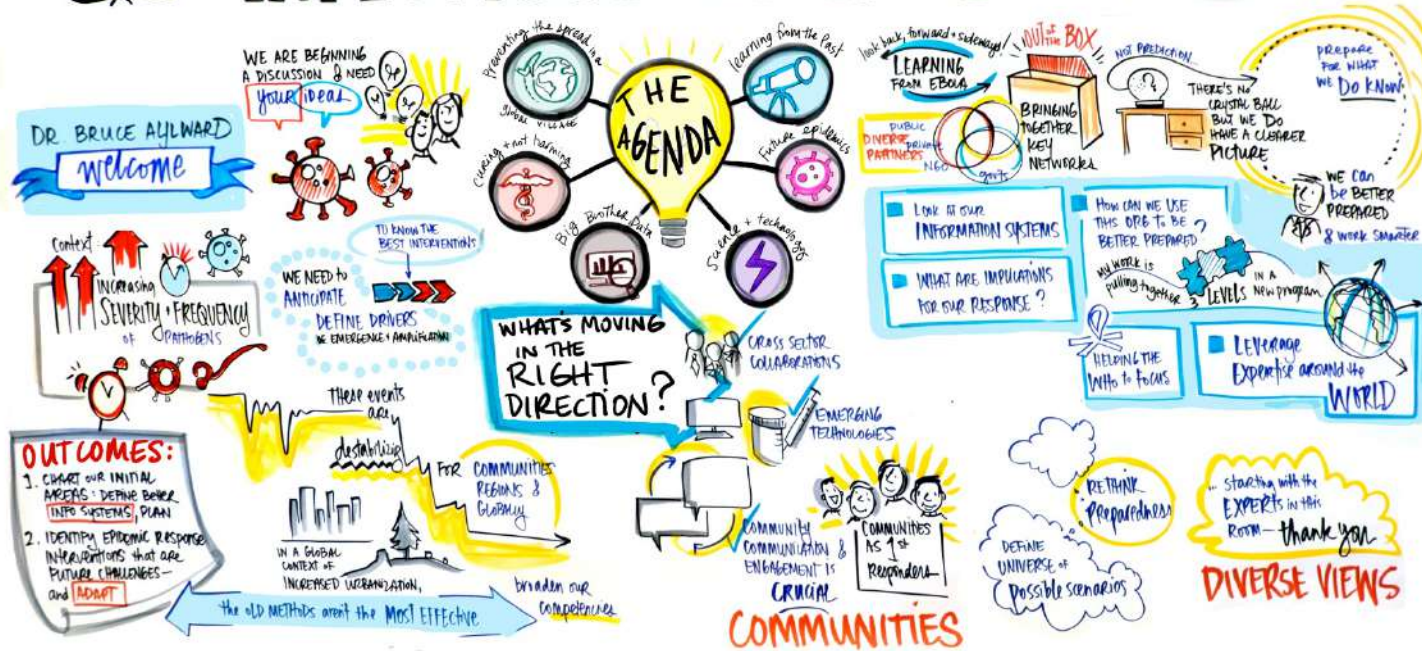 DR. BRUCE AYLWARD
welcome
WE ARE BEGINNING
A DISCUSSION & NEED
your ideas
Context
INCREASING
SEVERITY + FREQUENCY
OF PATHOGENS
TO KNOW THE
BEST INTERVENTIONS
WE NEED to
ANTICIPATE
DEFINE DRIVERS
OF EMERGENCE + AMPLIFICATION
OUTCOMES:
1. CHART OUR INITIAL
AREAS: DEFINE BETTER
INFO SYSTEMS, PLAN
2. IDENTIFY EPIDEMIC RESPONSE
INTERVENTIONS that are
FUTURE CHALLENGES—
and ADAPT
These events
are
destabilizing
FOR COMMUNITIES
REGIONS &
GLOBALLY
IN A GLOBAL
CONTEXT OF
INCREASED URBANIZATION,
the OLD METHODS aren't the MOST EFFECTIVE
broaden our
competencies
THE
AGENDA
Preventing the spread in a
global VILLAGE
learning from the Past
Curing + not harming
Future epidemics
Big Brother Data
Science + technology
WHAT'S MOVING
IN THE
RIGHT
DIRECTION?
CROSS SECTOR
COLLABORATIONS
EMERGING
TECHNOLOGIES
COMMUNITY
COMMUNICATION &
ENGAGEMENT IS
CRUCIAL
COMMUNITIES
AS 1st
Responders
COMMUNITIES
look back, forward + sideways!
LEARNING
FROM EBOLA
PUBLIC
DIVERSE
PARTNERS
private
NGO
govts
OUT of the BOX
BRINGING
TOGETHER
KEY
NETWORKS
NOT PREDICTION...
THERE'S NO
CRYSTAL BALL
BUT WE DO
HAVE A CLEARER
PICTURE
PREPARE
FOR WHAT
WE DO KNOW
WE CAN
be BETTER
PREPARED
& WORK SMARTER
LOOK AT OUR
INFORMATION SYSTEMS
WHAT ARE IMPLICATIONS
FOR OUR RESPONSE?
HOW CAN WE USE
THIS ORG TO BE
BETTER PREPARED?
MY WORK IS
pulling together
3 LEVELS
IN A
NEW PROGRAM
HELPING THE
WHO to FOCUS
LEVERAGE
EXPERTISE AROUND the
WORLD
RETHINK
Preparedness
DEFINE
UNIVERSE OF
possible scenarios
... starting with the
EXPERTS in this
ROOM— thank you
DIVERSE VIEWS